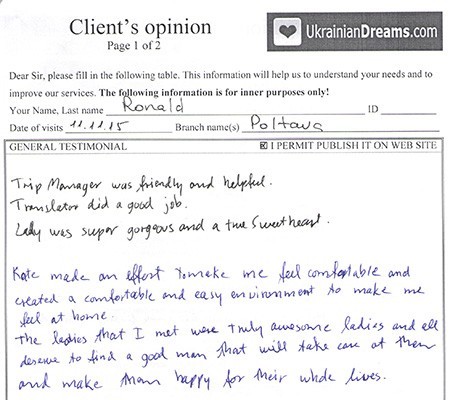 Client's opinion
Page 1 of 2
UkrainianDreams.com
Dear Sir, please fill in the following table. This information will help us to understand your needs and to
improve our services. The following information is for inner purposes only!
Your Name, Last name Ronald ID
Date of visits 11.11.15 Branch name(s) Poltava
GENERAL TESTIMONIAL ☒ I PERMIT PUBLISH IT ON WEB SITE
Trip Manager was friendly and helpful.
Translator did a good job.
Lady was super gorgeous and a true sweetheart.
Kate made an effort to make me feel comfortable and
created a comfortable and easy environment to make me
feel at home.
The ladies that I met were truly awesome ladies and all
deserve to find a good man that will take care of them
and make them happy for their whole lives.